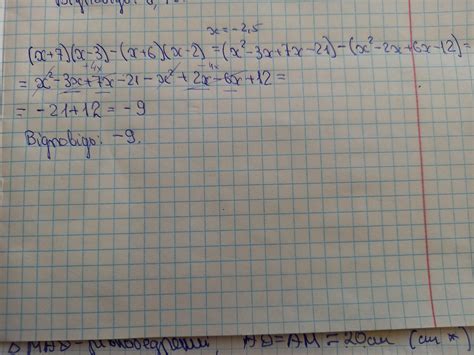 Відповідь:
x = -2,5
(x+7)(x-3)-(x+6)(x-2) = (x²-3x+7x-21)-(x²-2x+6x-12)=
+4x -4x
= x²-3x+7x-21-x²+2x-6x+12=
= -21+12 = -9
Відповідь: -9.
AD=AM=20см